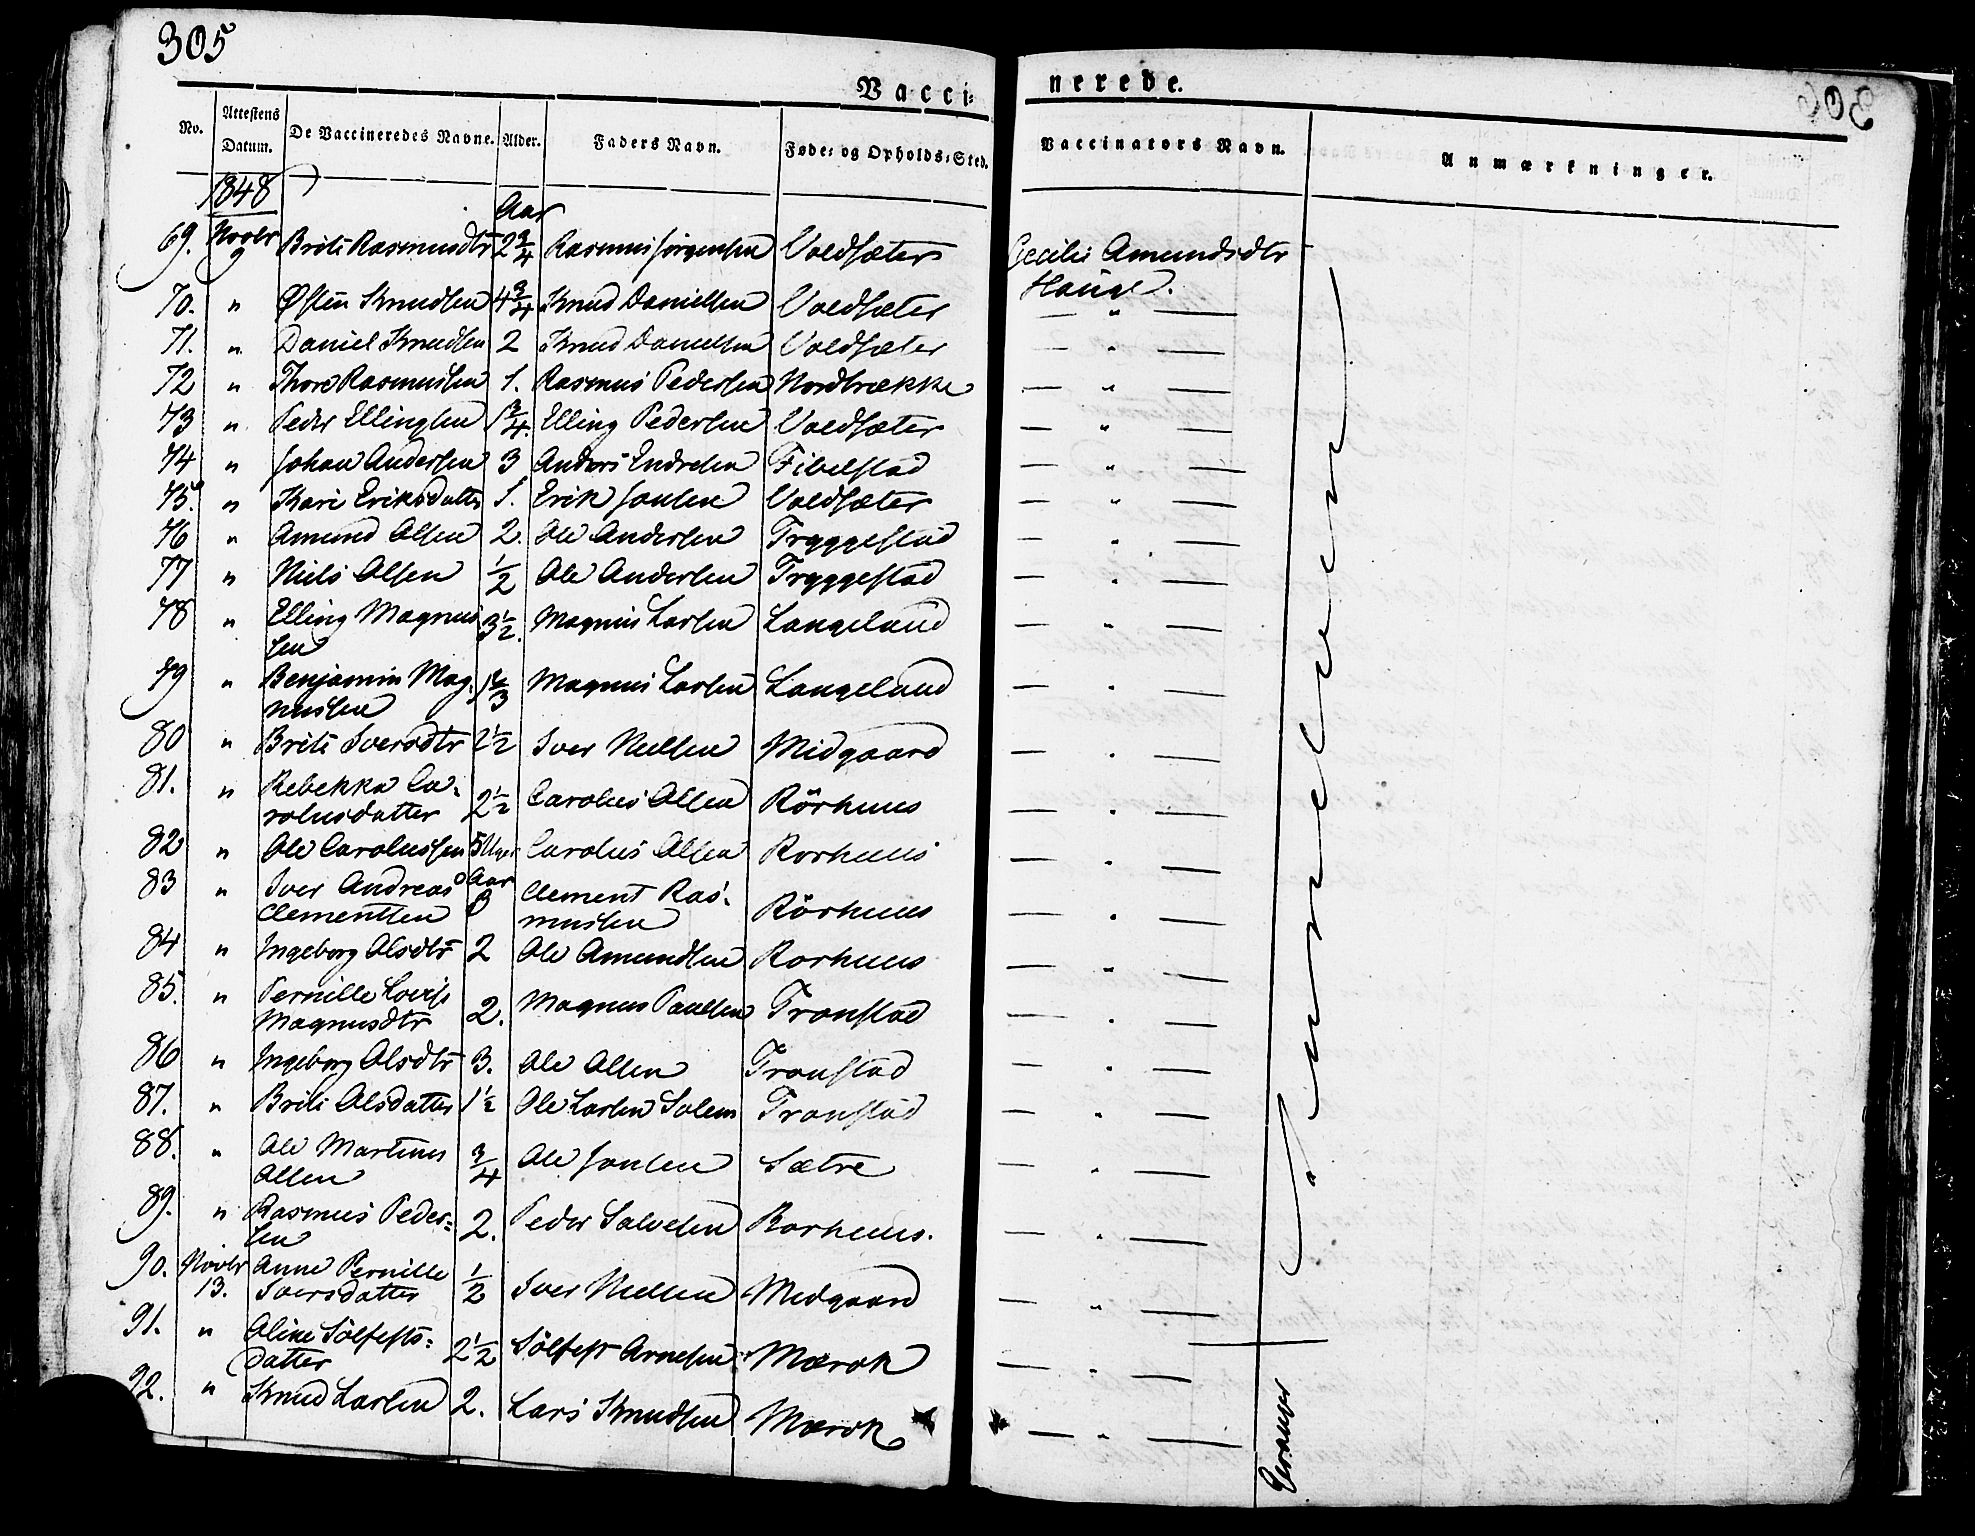 305
Vaccinerede.
No. Attestens Datum. De Vaccineredes Navne. Alder. Faders Navn. Føde- og Opholds-Sted. Vaccinators Navn. Anmærkninger.
1848 Aar
69. Novbr 9 Brite Rasmusdtr 2 3/4 Rasmus Jørgensen Voldsæter Cecilie Amundsdtr
Hauge.
70. " Østen Knudsen 4 3/4 Knud Danielsen Voldsæter — " —
71. " Daniel Knudsen 2 Knud Danielsen Voldsæter — " —
72 " Thore Rasmussen 1. Rasmus Pedersen Nordbrække — " —
73 " Peder Ellingsen 1 3/4. Elling Pedersen Voldsæter — " —
74 " Johan Andersen 3 Anders Endresen Fibelstad — " —
75. " Kari Eriksdatter 1. Erik Jonsen Voldsæter — " —
76 " Amund Olsen 2. Ole Andersen Tryggestad — " —
77 " Niels Olsen 1/2 Ole Andersen Tryggestad — " —
78 " Elling Magnus 3 1/2. Magnus Larsen Langeland — " —
sen
79 " Benjamin Mag- 1 2/3 Magnus Larsen Langeland — " —
nussen
80 " Brite Iversdtr 2 1/2 Iver Nielsen Midgaard — " —
81. " Rebekka Ca- 2 1/2 Carolus Olsen Rörhuus — " —
rolusdatter
82 " Ole Carolussen 5 Uger Carolus Olsen Rorhuus — " —
83 " Iver Andreas Aar 3 Clement Ras- Rörhuus — " —
Clementsen mussen
84 " Ingeborg Olsdtr 2 Ole Amundsen Rorhuus — " —
85. " Pernille Lovise 2. Magnus Paulsen Tronstad — " —
Magnusdtr
86 " Ingeborg Olsdtr 3. Ole Olsen Tronstad — " —
87. " " Brite Olsdatter 1 1/2 Ole Larsen Salem Tronstad — " —
88. " Ole Martinus 3/4 Ole Jonsen Sætre — " —
Olsen
89. " Rasmus Peder= 2. Peder Salvesen Rorhuus. — " —
sen
90. Novbr 13. Anne Pernille 1/2 Iver Nielsen Midgaard — " —
Iversdatter
91. " Oline Sölfests= 2 1/2 Sölfest Arnesen Mærok — " —
datter
92. " Knud Larsen 2. Lars Knudsen Mærok — " —
Sunelven
Geiranger